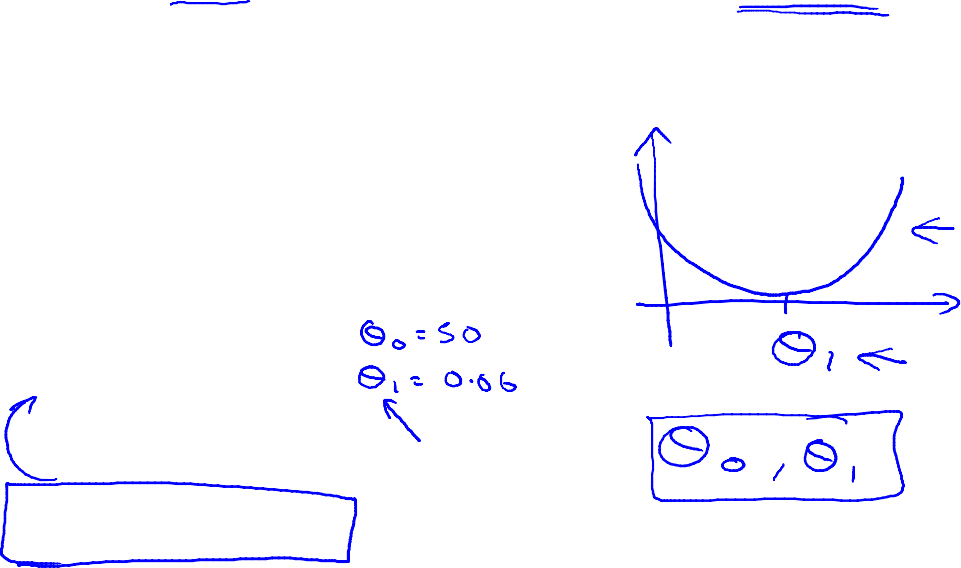 θ₀ = 50
θ₁ = 0.06
θ₁
θ₀, θ₁